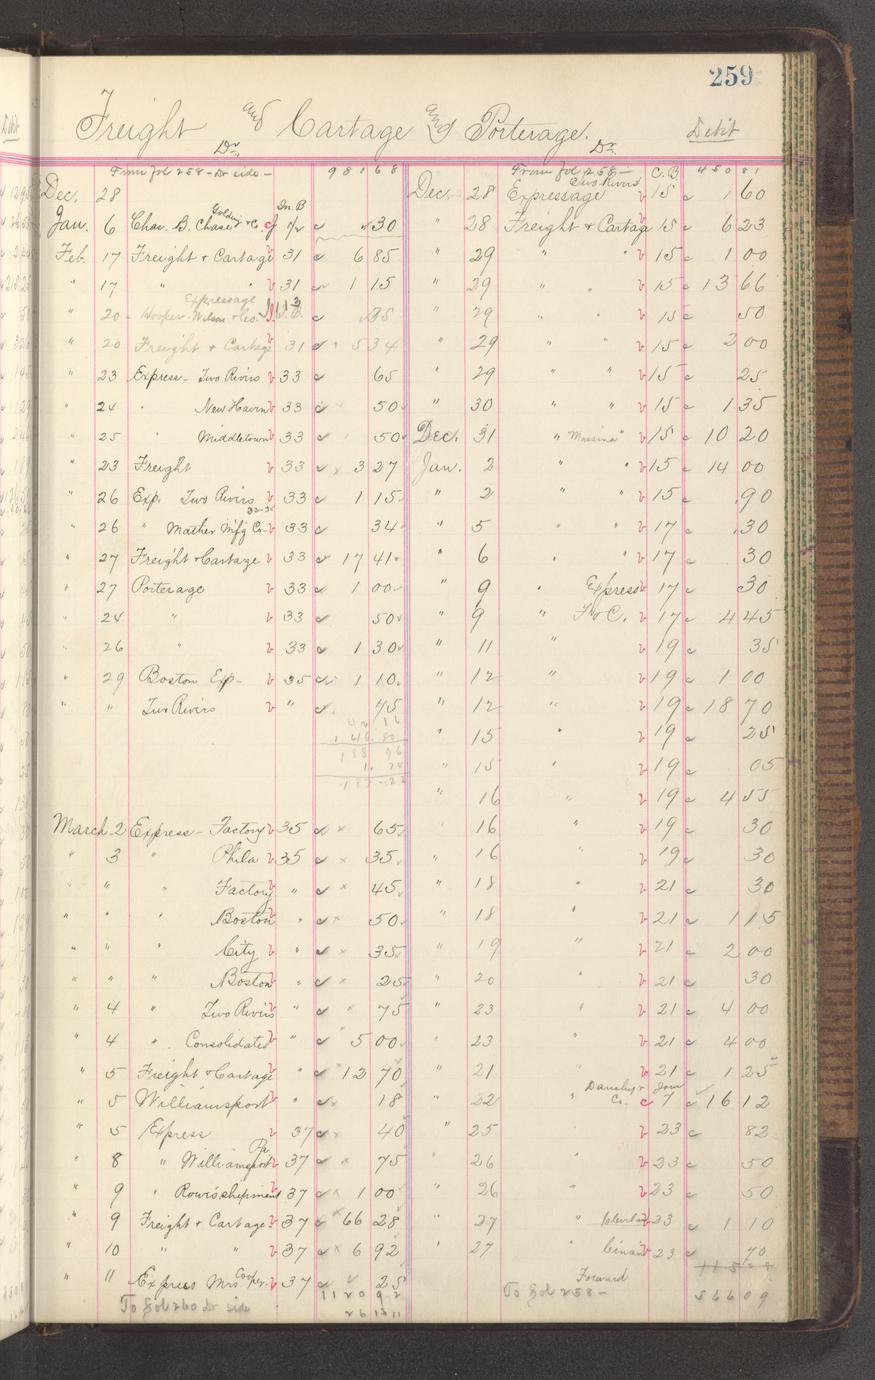 259
Freight and Cartage and Porterage.
Dr. Dr. Debit
From fol 258 - Dr side - 981 68
Dec. 28
In. B
Jan. 6 Chas. B. Chase Golding & Co. 1/2 30
Feb. 17 Freight & Cartage 31 6 85
" 17 " " 31 1 15
Expressage
" 20 Hooper Wilson & Co.
" 20 Freight & Cartage 31 5 34
" 23 Express - Two Rivers 33 65
" 24 " New Haven 33 50
" 25 " Middletown 33 50
" 23 Freight 33 3 27
" 26 Exp. Two Rivers 33 1 15
" 26 " Mather Mfg Co. 33 34
" 27 Freight & Cartage 33 17 41
" 27 Porterage 33 1 00
24 " 33 50
26 " 33 1 30
" 29 Boston Exp - 35 1 10
" " Two Rivers " 75
42 16
146 80
188 96
March 2 Express - Factory 35 65
" 3 " Phila 35 35
" " " Factory " 45
" " " Boston " 50
" " " City " 35
" " " Boston " 25
" 4 " Two Rivers " 75
" 4 " Consolidated " 5 00
" 5 Freight & Cartage " 12 70
" 5 Williamsport " 18
" 5 Express 37 40
" 8 " Williamsport Pa 37 75
" 9 " Rowe's shipment 37 1 00
" 9 Freight & Cartage 37 66 28
" 10 " " 37 6 92
" 11 Express Mrs Cooper 37 25
1120 92
To fol 260 Dr side 26 13 11
From fol 258 - C. B 450 81
Dec. 28 Expressage Two Rivers 15 1 60
" 28 Freight & Cartage 15 6 23
" 29 " " 15 1 00
" 29 " " 15 13 66
" 29 " " 15 50
" 29 " " 15 2 00
" 29 " " 15 25
" 30 " " 15 1 35
Dec. 31 " 15 10 20
Jan. 2 " " 15 14 00
" 2 " " 15 90
" 5 " " 17 30
" 6 " " 17 30
" 9 " Express 17 30
" 9 " F & C. 17 4 45
" 11 " 19 35
" 12 " 19 1 00
" 12 " 19 18 70
" 15 " 19 25
" 15 " 19 05
" 16 " 19 4 55
" 16 " 19 30
" 16 " 19 30
" 18 " 21 30
" 18 " 21 1 15
" 19 " 21 2 00
" 20 " 21 30
" 23 " 21 4 00
" 23 " 21 4 00
" 21 " 21 1 25
" 22 " Co. Jour 7 16 12
" 25 " 23 82
" 26 " 23 50
" 26 " 23 50
" 27 " 23 1 10
" 27 " 23 70
Forward
To fol 258 - 566 09